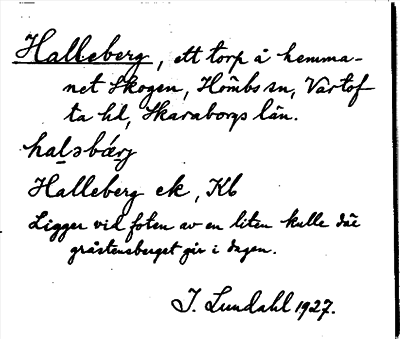 Halleberg, ett torp å hemma-
net Skogen, Hömbs sn, Vartof
ta hd, Skaraborgs län.
halɘbárj
Halleberg ek, Kb
Ligger vid foten av en liten kulle där
gråstensberget går i dagen.
J. Lundahl 1927.